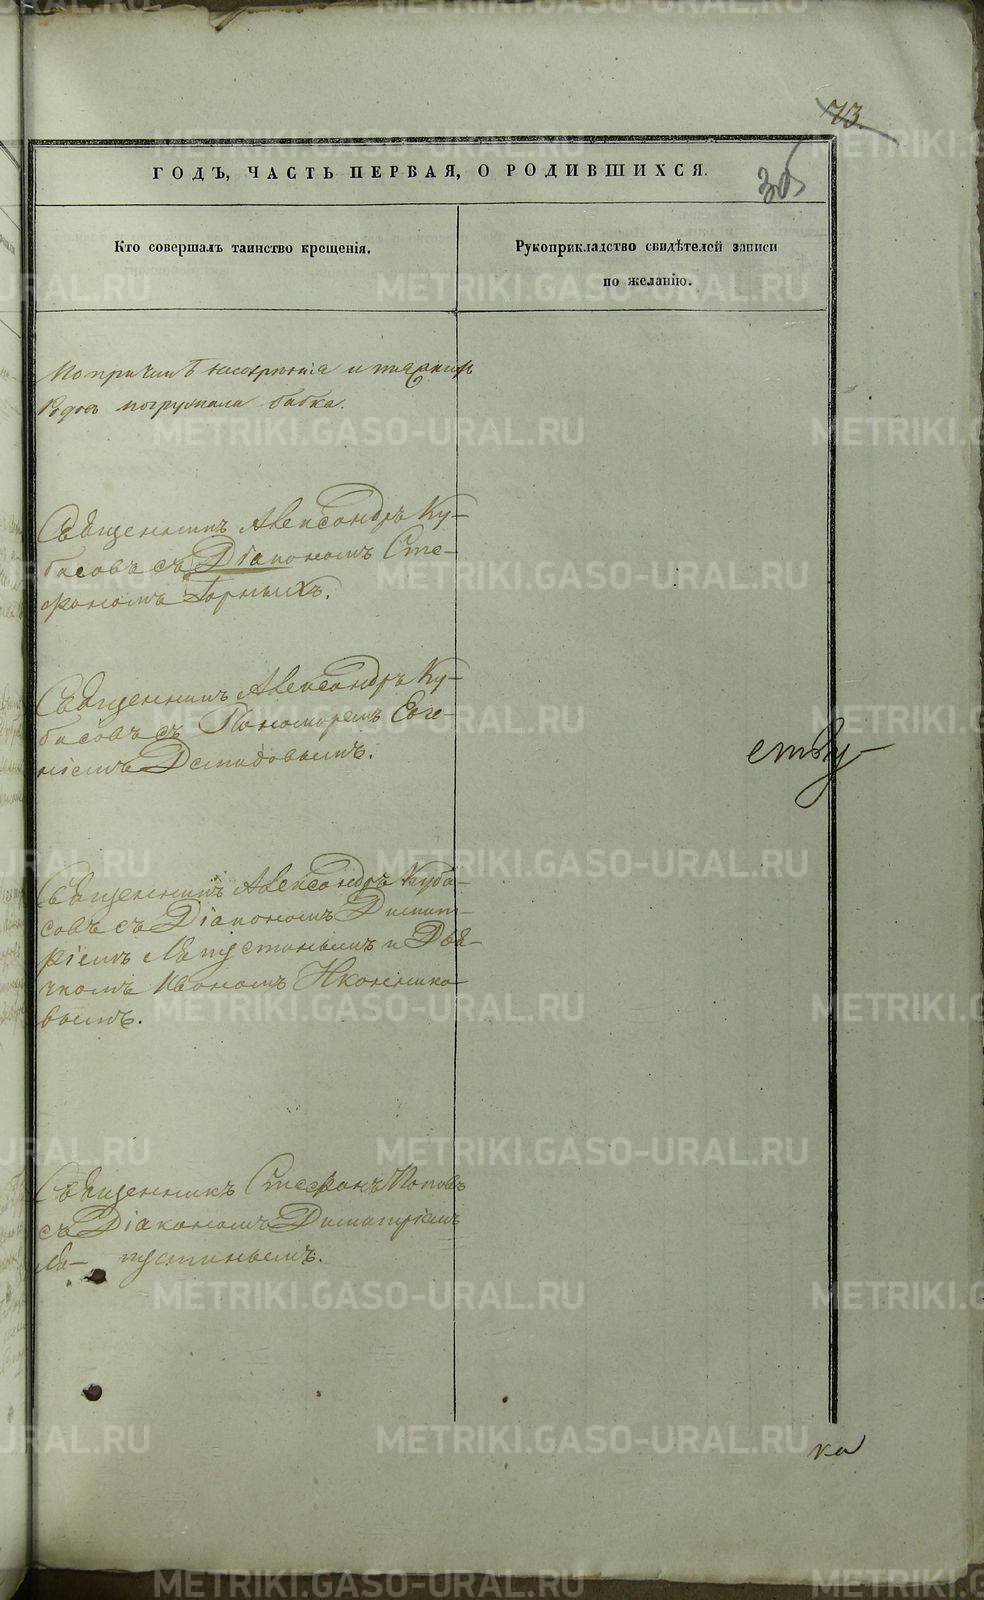 73.
ГОДЪ, ЧАСТЬ ПЕРВАЯ, О РОДИВШИХСЯ.
Кто совершалъ таинство крещенія.
Рукоприкладство свидѣтелей записи
по желанію.
По причинѣ и
погружала бабка.
Священникъ Александръ Ку-
басовъ съ Діакономъ Сте-
фаномъ Горныхъ.
Священникъ Александръ Ку-
басовъ съ Пономаремъ Евге-
ніемъ Демидовымъ.
ству-
Священникъ Александръ Куба-
совъ съ Діакономъ Димит-
ріемъ Ляпустинымъ и Дья-
чкомъ Иваномъ Иконнико-
вымъ.
Священникъ Стефанъ Поповъ
съ Діакономъ Димитріемъ
Ля- пустинымъ.
METRIKI.GASO-URAL.RU